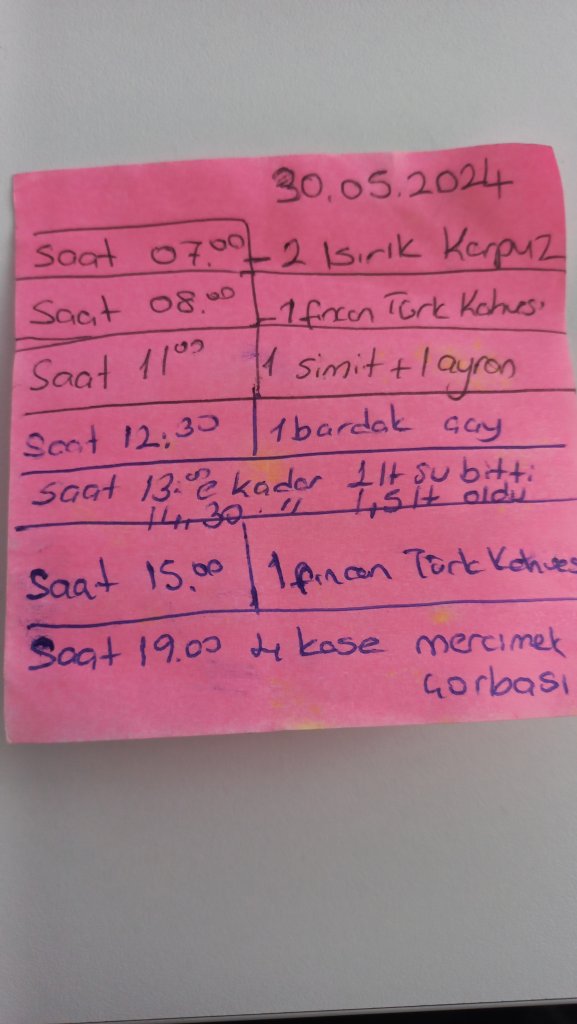 30.05.2024
Saat 07.00 - 2 Isırık Karpuz
Saat 08.00 - 1 fincan Türk Kahvesi
Saat 11.00 1 simit + 1 ayran
Saat 12:30 1 bardak çay
Saat 13:00 e kadar 1 lt su bitti
14,30 " 1,5 lt oldu
Saat 15.00 1 fincan Türk Kahves
Saat 19.00 kase mercimek
çorbası